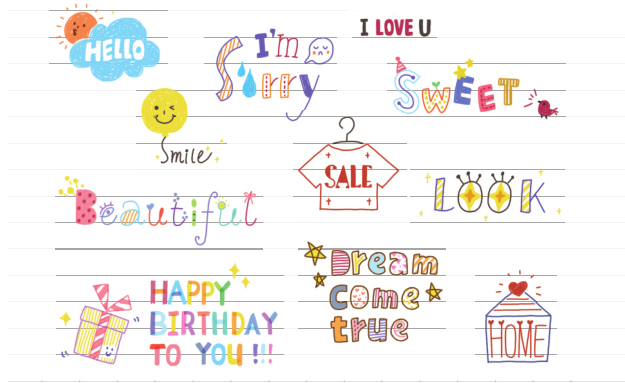 HELLO
I'm
Sorry
I LOVE U
SWEET
Smile
SALE
Beautiful
LOOK
Dream
come
true
HAPPY
BIRTHDAY
TO YOU !!!
HOME